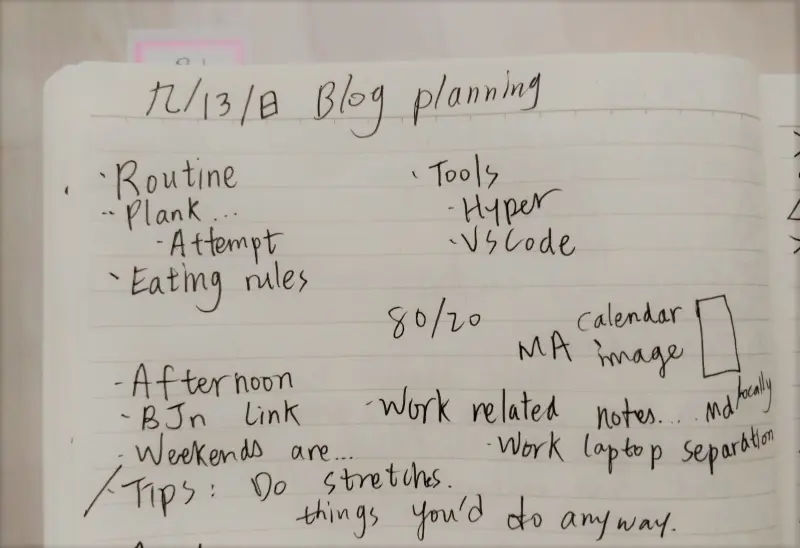 九/13/日 Blog planning
· Routine
· Tools
-- Plank...
- Hyper
- Attempt
· VSCode
· Eating rules
80/20
calendar
MA image
- Afternoon
· BJn link
· Work related notes.... md locally
· Weekends are...
· Work laptop separation
· Tips: Do stretches.
things you'd do anyway.